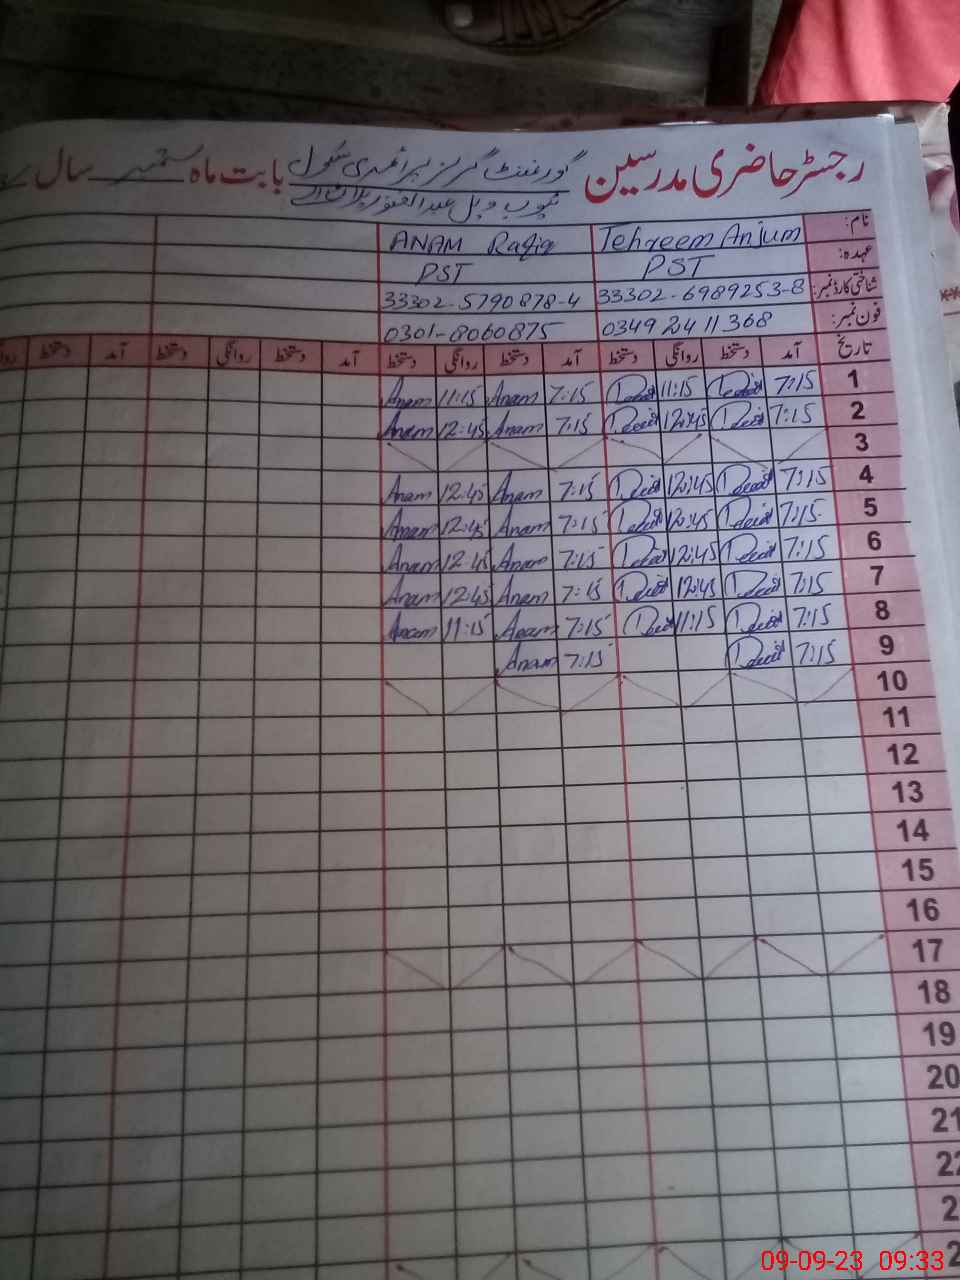 رجسٹر حاضری مدرسین گورنمنٹ گرلز پرائمری سکول بابت ماہ ستمبر سال
ٹیوب ویل عبدالغفور
نام: Tehreem Anjum ANAM Rafiq
عہدہ: PST PST
شناختی کارڈ نمبر: 33302-6989253-8 33302-5790878-4
فون نمبر: 0349 2411368 0301-8060875
تاریخ آمد دستخط روانگی دستخط آمد دستخط روانگی دستخط آمد دستخط روانگی دستخط آمد دستخط
1 7:15 11:15 7:15 Anam 11:15 Anam
2 7:15 12:45 7:15 Anam 12:45 Anam
3
4 7:15 12:45 7:15 Anam 12:45 Anam
5 7:15 12:45 7:15 Anam 12:45 Anam
6 7:15 12:45 7:15 Anam 12:45 Anam
7 7:15 12:45 7:15 Anam 12:45 Anam
8 7:15 11:15 7:15 Anam 11:15 Anam
9 7:15 7:15 Anam
10
11
12
13
14
15
16
17
18
19
20
21
22
2
2
09-09-23 09:33